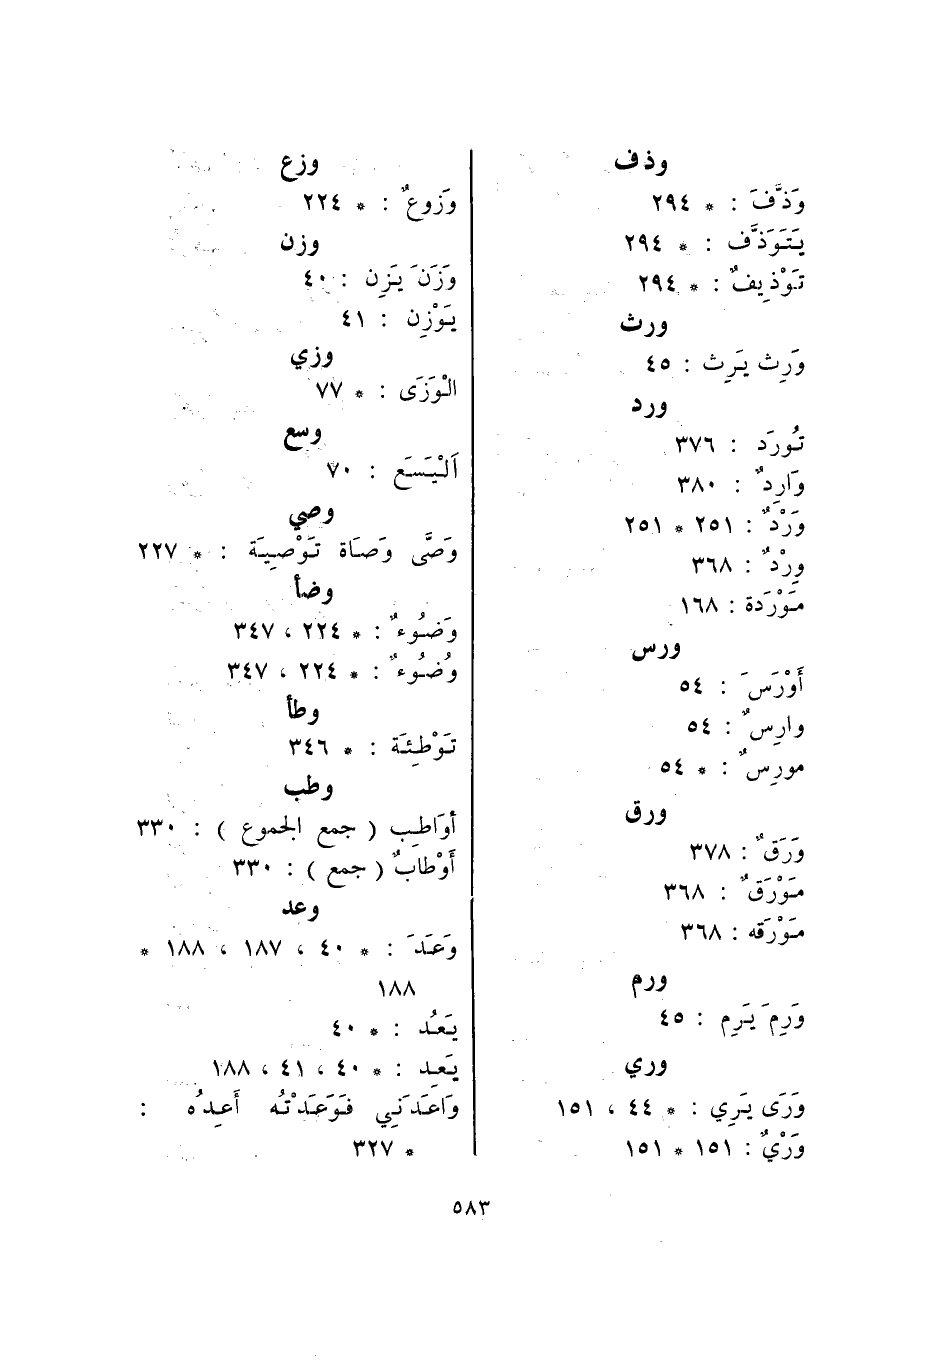 وذف
وَذَّفَ : * ٢٩٤
يَتَوَذَّف : * ٢٩٤
تَوْذِيفٌ : * ٢٩٤
ورث
وَرِث يَرِث : ٤٥
ورد
تُورَد : ٣٧٦
وَارِدٌ : ٣٨٠
وَرْدٌ : ٢٥١ * ٢٥١
وِرْدٌ : ٣٦٨
مَوْرَدة : ١٦٨
ورس
أَوْرَسَ : ٥٤
وارِسٌ : ٥٤
مورِسٌ : * ٥٤
ورق
وَرَقٌ : ٣٧٨
مَوْرَقٌ : ٣٦٨
مَوْرَقه : ٣٦٨
ورم
وَرِمَ يَرِم : ٤٥
وري
وَرَى يَرِي : * ٤٤ ، ١٥١
وَرْيٌ : ١٥١ * ١٥١
وزع
وَزوعٌ : * ٢٢٤
وزن
وَزَنَ يَزِن : ٤٠
يَوْزِن : ٤١
وزي
الْوَزَى : * ٧٧
وسع
اَلْيَسَع : ٧٠
وصي
وَصَّى وَصَاة تَوْصِيَة : * ٢٢٧
وضأ
وَضُوءٌ : * ٢٢٤ ، ٣٤٧
وُضُوءٌ : * ٢٢٤ ، ٣٤٧
وطأ
تَوْطِئَة : * ٣٤٦
وطب
أوَاطِب ( جمع الجموع ) : ٣٣٠
أَوْطابٌ ( جمع ) : ٣٣٠
وعد
وَعَدَ : * ٤٠ ، ١٨٧ ، ١٨٨ *
١٨٨
يَعُد : * ٤٠
يَعِد : * ٤٠ ، ٤١ ، ١٨٨
وَاعَدَنِي فَوَعَدْتُه أَعِدُه :
* ٣٢٧
٥٨٣